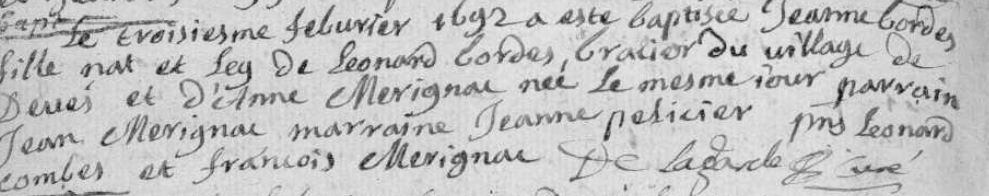 Le troisiesme feburier 1692 a este baptisée Jeanne bordes
fille nat et leg de Leonard bordes, bracier du village de
Deues et d'Anne Merignac neé le mesme iour parrain
Jean Merignac marraine Jeanne pelicier pnts Leonard
combes et francois Merignac De Lagarde curé